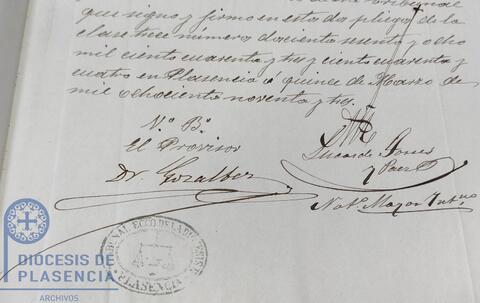 que signo y firmo en esta do pliego de la
clase trece número docienta sesenta y ocho
mil ciento cuarenta y tres y ciento cuarenta y
cuatro en Plasencia á quince de Marzo de
mil ochocienta noventa y tres.
Vº. Bº.
El Provisor
Dr. Gozalbez
y Paez
Notº. Mayor
TRIBUNAL ECCO DE LA
PLASENCIA
DIOCESIS DE
PLASENCIA
ARCHIVOS